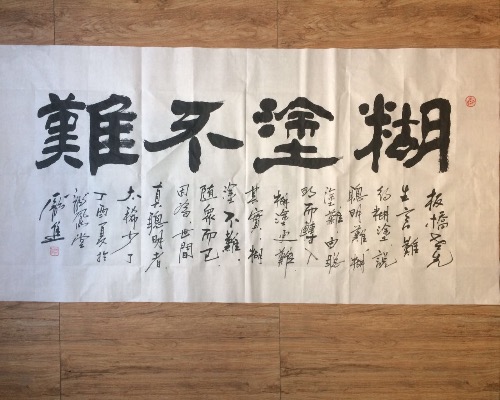 糊塗不難
板橋先
生言難
糊塗說
聰明難糊
塗難由聰
明而轉入
糊塗更難
其實糊
塗不難
随衆而已
世間
真聰明者
太稀少了
丁酉夏於
堂